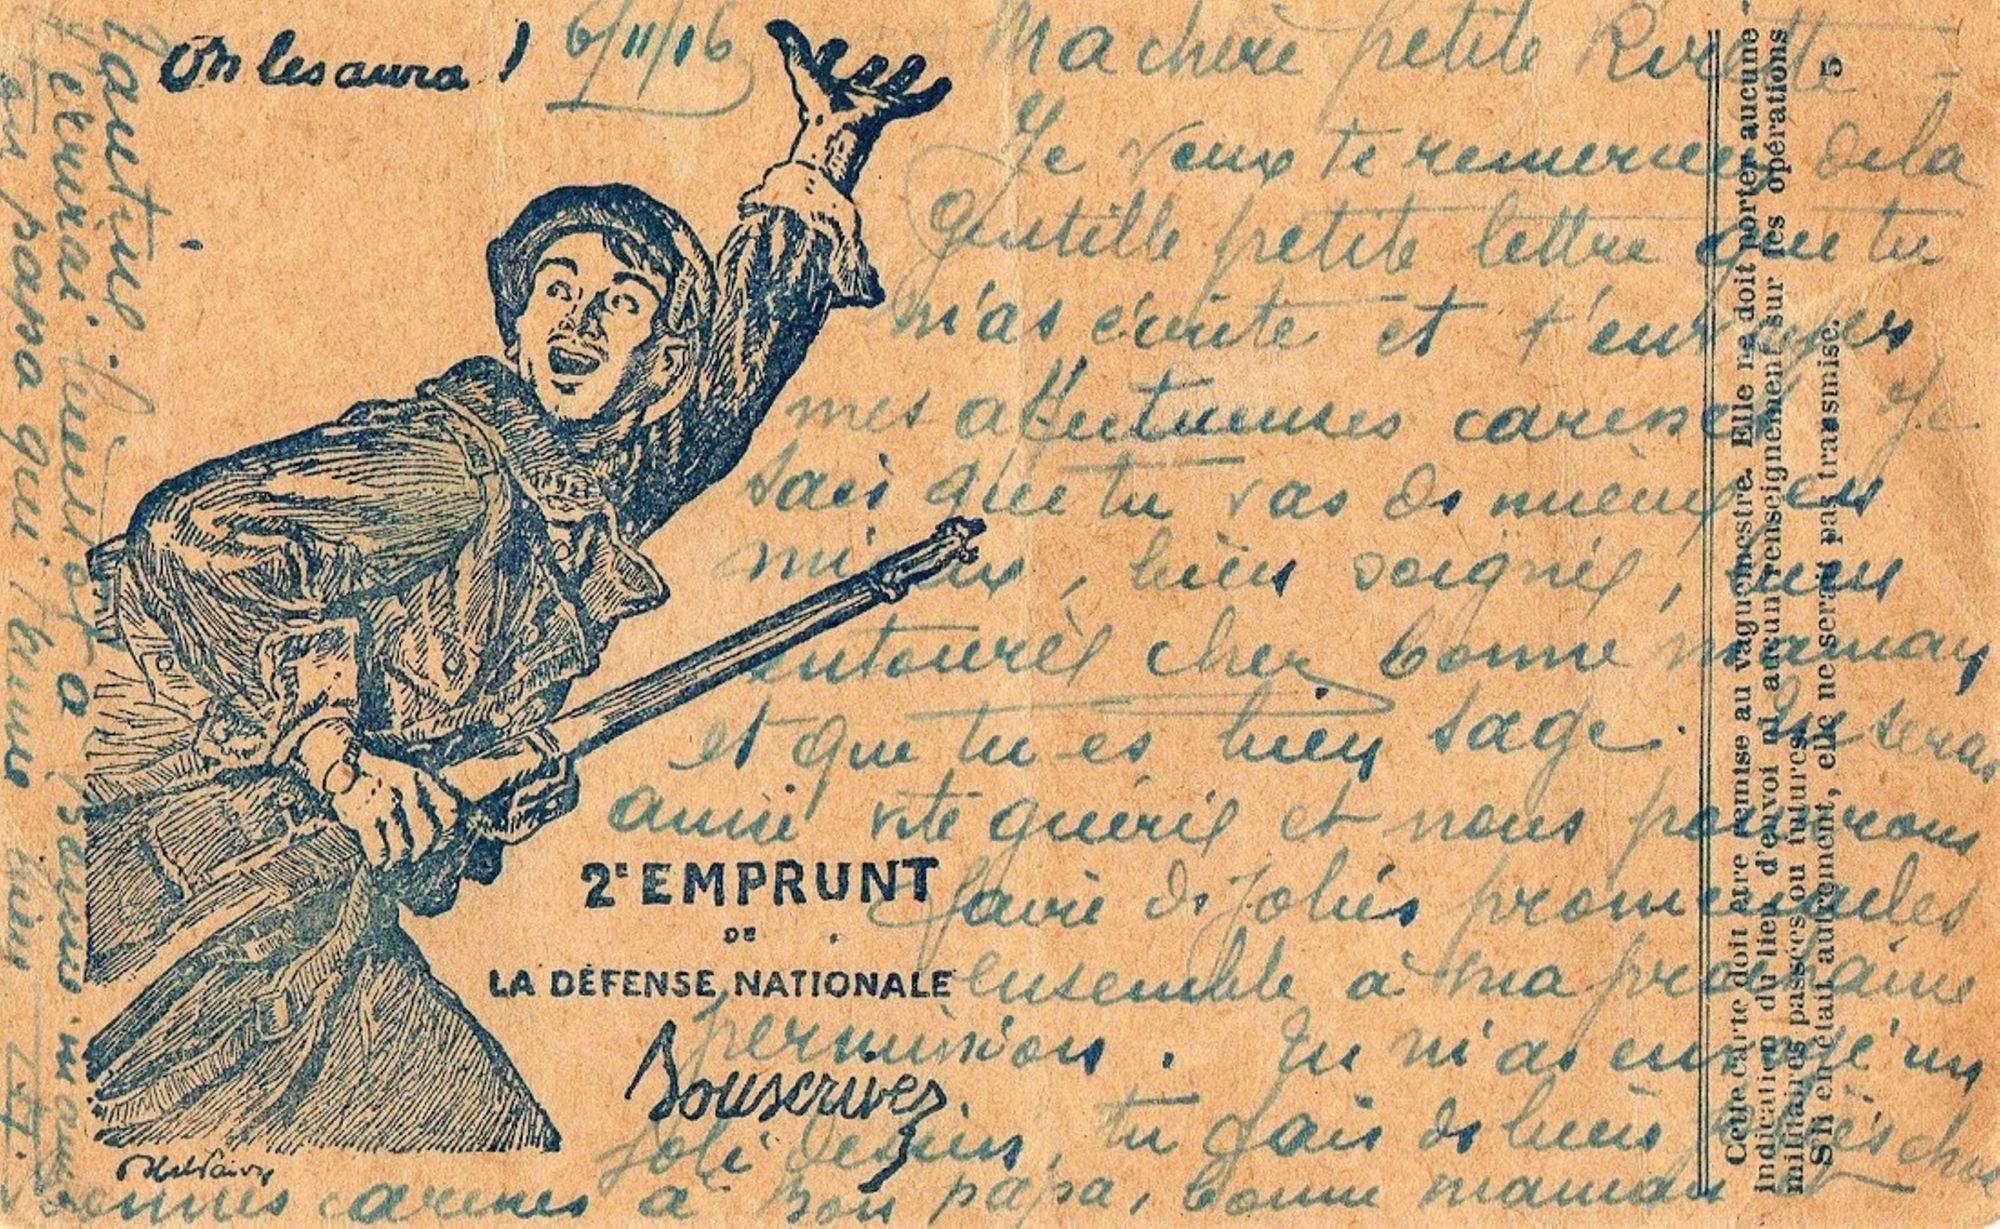 On les aura !
6/11/16
Ma chère petite
Je veux te remercier de la
gentille petite lettre que tu
m'as écrite et t'envoyer
mes affectueuses caresses. Je
sais que tu vas de mieux en
mieux, bien soigné, bien
entouré chez bonne maman
et que tu es bien sage. Tu seras
ainsi vite guéri et nous pourrons
faire de jolies promenades
ensemble à ma prochaine
permission. Tu m'as envoyé un
joli dessin, tu fais de bien
bonnes caresses à Bon papa, bonne maman
ton papa qui t'aime bien
2e EMPRUNT
DE
LA DÉFENSE NATIONALE
Souscrivez
Cette carte doit être remise au vaguemestre. Elle ne doit porter aucune
indication du lieu d'envoi ni aucun renseignement sur les opérations
militaires passées ou futures.
S'il en était autrement, elle ne serait pas transmise.
5